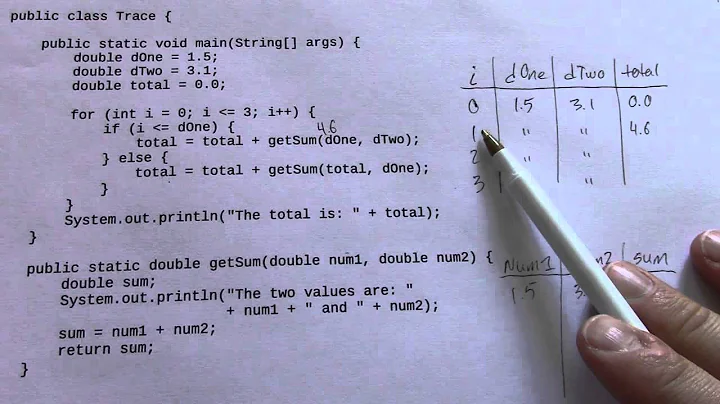 public class Trace {
public static void main(String[] args) {
double dOne = 1.5;
double dTwo = 3.1;
double total = 0.0;
for (int i = 0; i <= 3; i++) {
if (i <= dOne) {
4.6
total = total + getSum(dOne, dTwo);
} else {
total = total + getSum(total, dOne);
}
}
System.out.println("The total is: " + total);
}
public static double getSum(double num1, double num2) {
double sum;
System.out.println("The two values are: "
+ num1 + " and " + num2);
sum = num1 + num2;
return sum;
}
i dOne dTwo total
0 1.5 3.1 0.0
1 " " 4.6
2 " "
3 "
Num1 sum
1.5